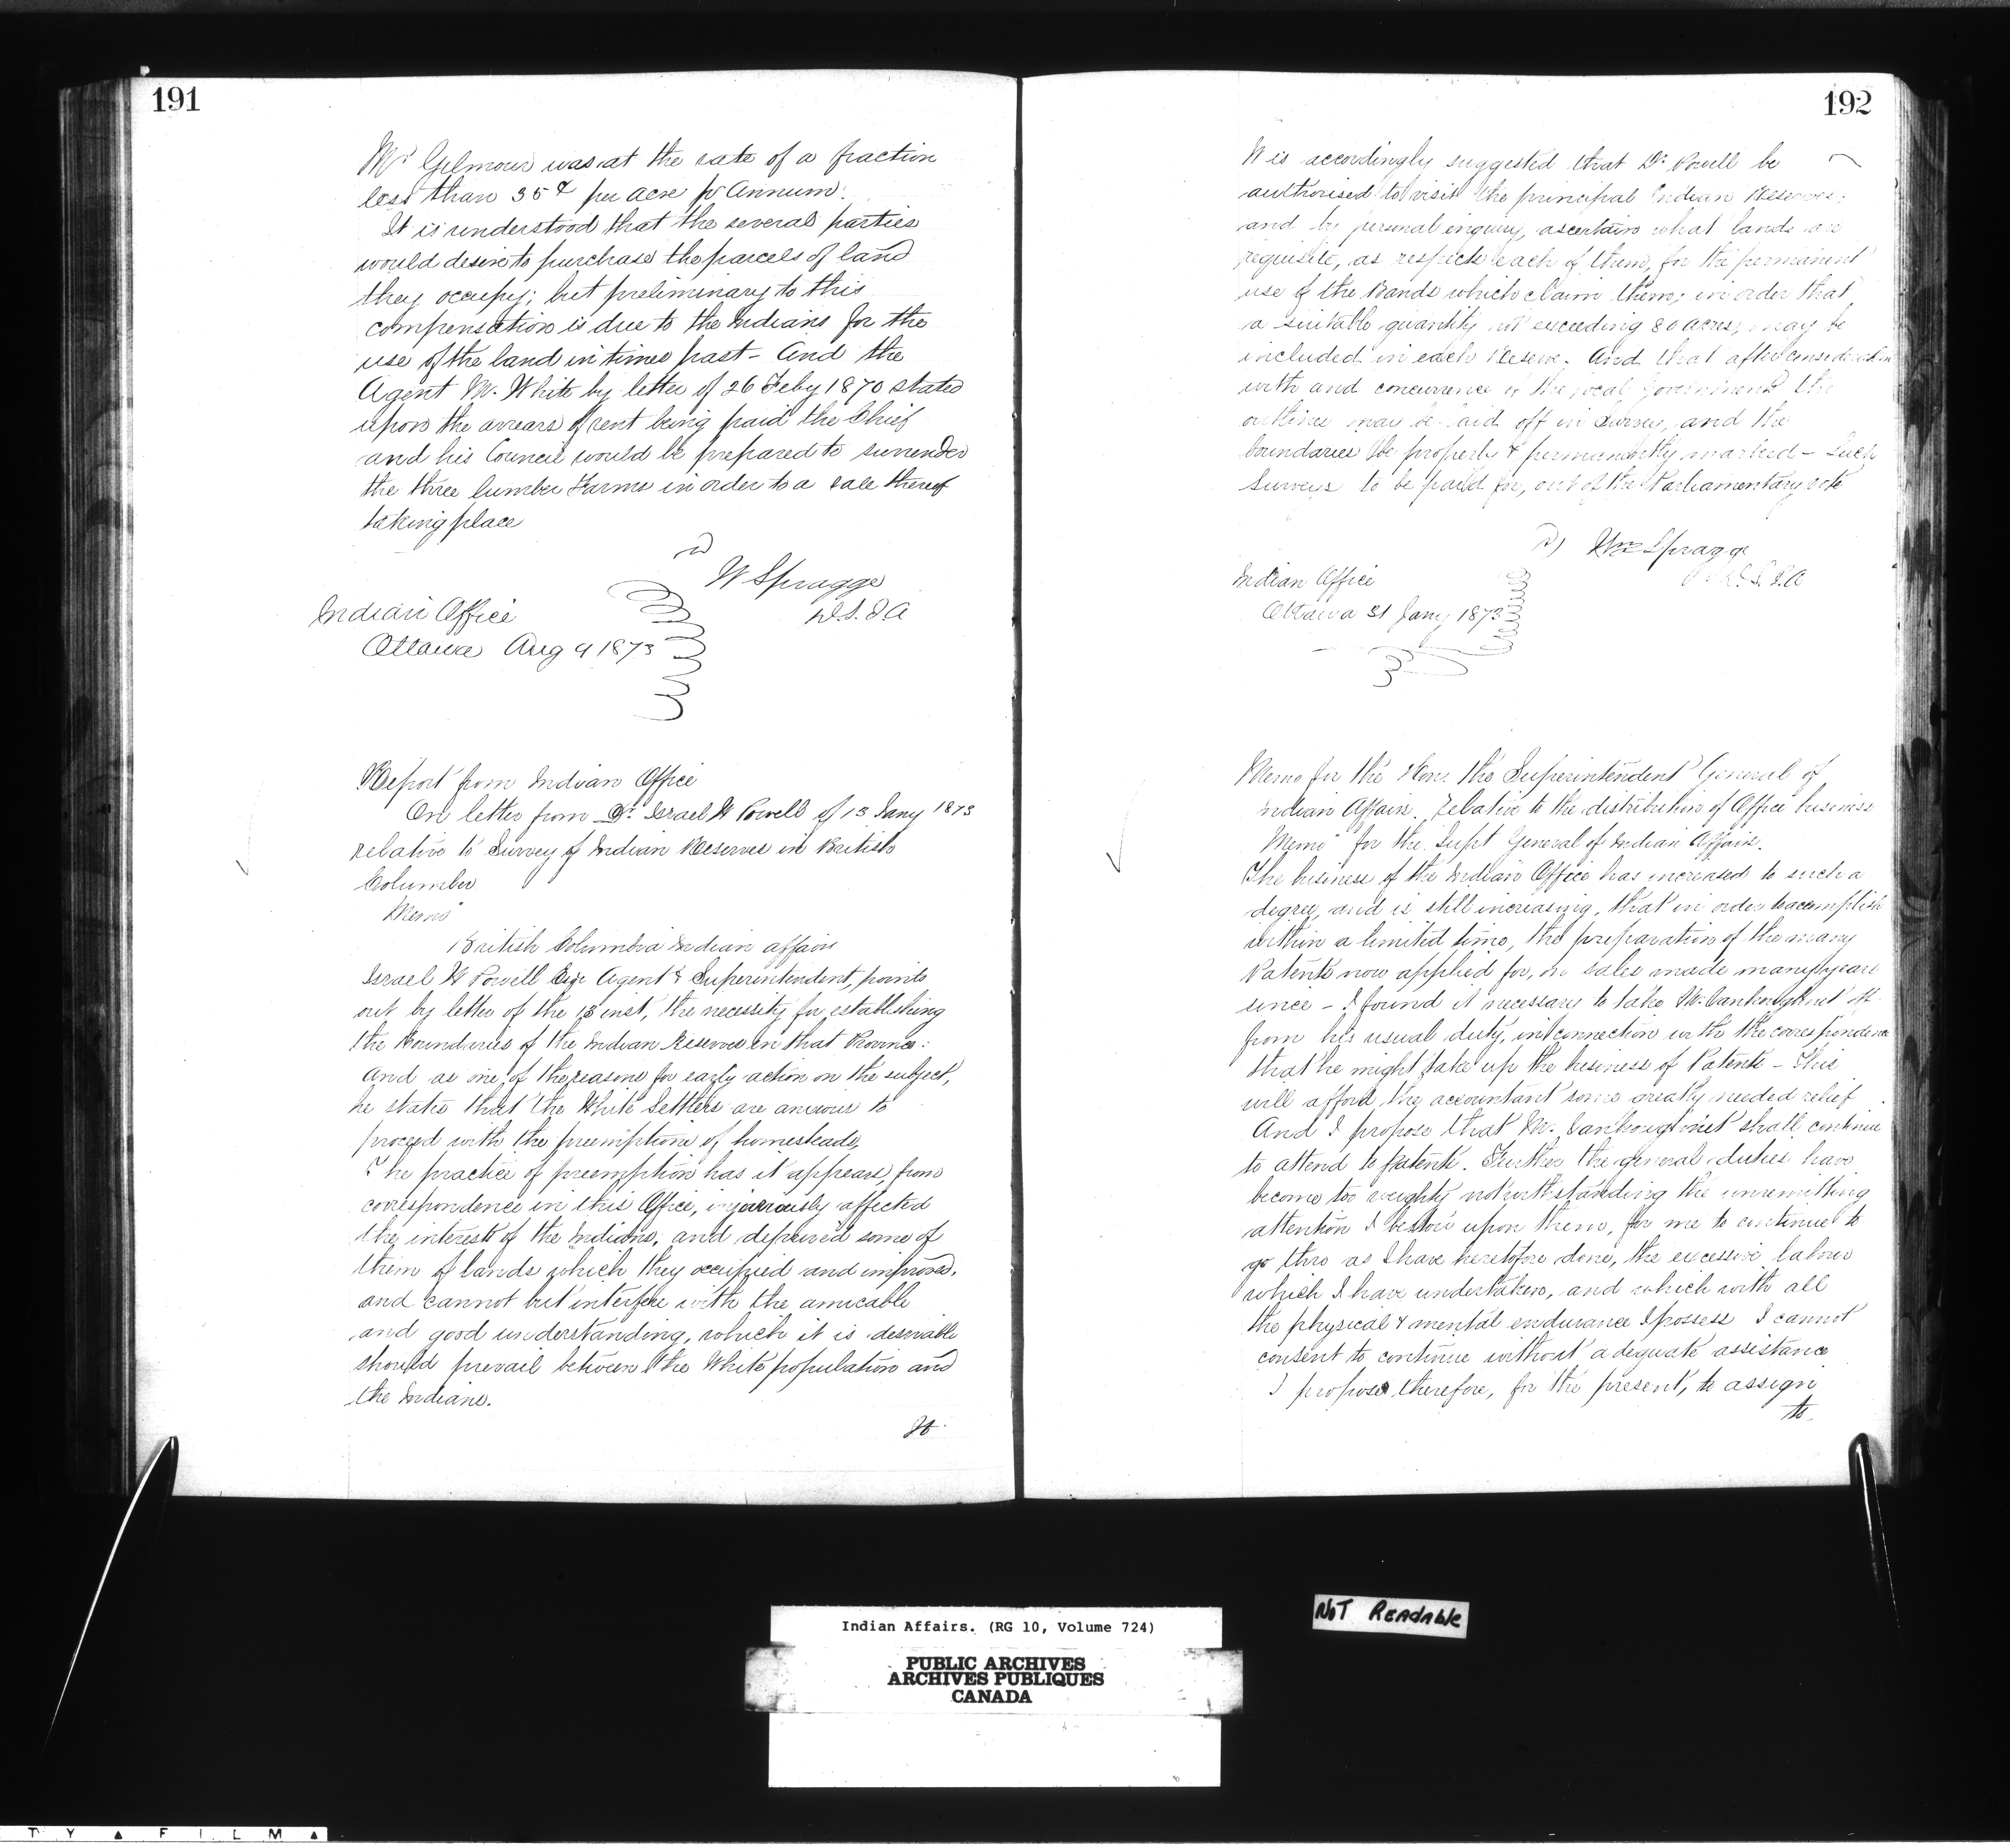 191
Mr Gilmour was at the rate of a fraction
less than 35 ¢ per acre pr Annum.
It is understood that the several parties
would desire to purchase the parcels of land
they occupy; but preliminary to this
compensation is due to the Indians for the
use of the land in times past - And the
Agent Mr. White by letter of 26 Feby 1870 stated
upon the arrears of rent being paid the Chief
and his Council would be prepared to surrender
the three lumber Farms in order to a sale thereof
taking place
W Spragge
D.S.I.A
Indian Office
Ottawa Aug 9 1873
Report from Indian Office
On letter from Dr. Israel W Powell of 13 Jany 1873
relative to Survey of Indian Reserves in British
Columbia
Memo
British Columbia Indian affairs
Israel W Powell Esqr Agent & Superintendent, points
out by letter of the 13 inst, the necessity for establishing
the Boundaries of the Indian Reserves in that Province:
And as one of the reasons for early action on the subject,
he states that the White Settlers are anxious to
proceed with the preemptions of homesteads,
The practice of preemption has it appears, from
correspondence in this Office, injuriously affected
the interests of the Indians, and deprived some of
them of lands which they occupied and improved,
and cannot but interfere with the amicable
and good understanding, which it is desirable
should prevail between the White population and
the Indians.
It
192
It is accordingly suggested that Dr. Powell be
authorised to visit the principal Indian Reserves,
and by personal inquiry, ascertain what lands are
requisite, as respects each of them, for the permanent
use of the Bands which claim them; in order that
a suitable quantity not exceeding 80 acres, may be
included in each Reserve. And that after consideration
with and concurrence of the local Government the
outlines may be laid off in Survey, and the
boundaries be properly & permanently marked - Such
Surveys to be paid for, out of the Parliamentary vote
Wm Spragge
D.S.I.A
Indian Office
Ottawa 31 Jany 1873
Memo for the Hon. the Superintendent General of
Indian Affairs. relative to the distribution of Office business
Memo for the Supt General of Indian Affairs.
The business of the Indian Office has increased to such a
degree, and is still increasing, that in order to accomplish
within a limited time, the preparation of the many
Patents now applied for, on sales made many years
since - I found it necessary to take Mr. Vankoughnet off
from his usual duty, in connection with the correspondence
that he might take up the business of Patents - This
will afford the accountant some greatly needed relief
And I propose that Mr. Vankoughnet shall continue
to attend to Patents. Further the general duties have
become too weighty notwithstanding the unremitting
attention I bestow upon them, for me to continue to
go thro as I have heretofore done, the excessive labour
which I have undertaken, and which with all
the physical & mental endurance I possess I cannot
consent to continue without adequate assistance
I propose therefore, for the present, to assign
to
Indian Affairs. (RG 10, Volume 724)
PUBLIC ARCHIVES
ARCHIVES PUBLIQUES
CANADA
NOT READABLE
T Y ▲ F I L M ▲